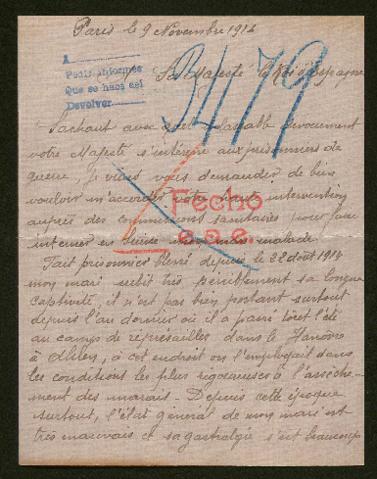 Paris le 9 Novembre 1916
A
Pedir informes
Que se hará así
Devolver
3479
Sa Majesté le Roi d'Espagne
Sachant avec quel inlassable dévouement
votre Majesté s'intéresse aux prisonniers de
guerre, je viens vous demander de bien
vouloir m'accorder votre haute intervention
auprès des commissions sanitaires pour faire
interner en Suisse mon mari malade
Fecho
Fait prisonnier blessé depuis le 22 août 1914
mon mari subit très péniblement sa longue
captivité, il n'est pas bien portant surtout
depuis l'an dernier où il a passé tout l'été
au camp de représailles dans le Hanovre
à, à cet endroit on l'employait dans
les conditions les plus rigoureuses à l'assèche-
ment des marais - Depuis cette époque
surtout, l'état général de mon mari est
très mauvais et sa gastralgie s'est beaucoup